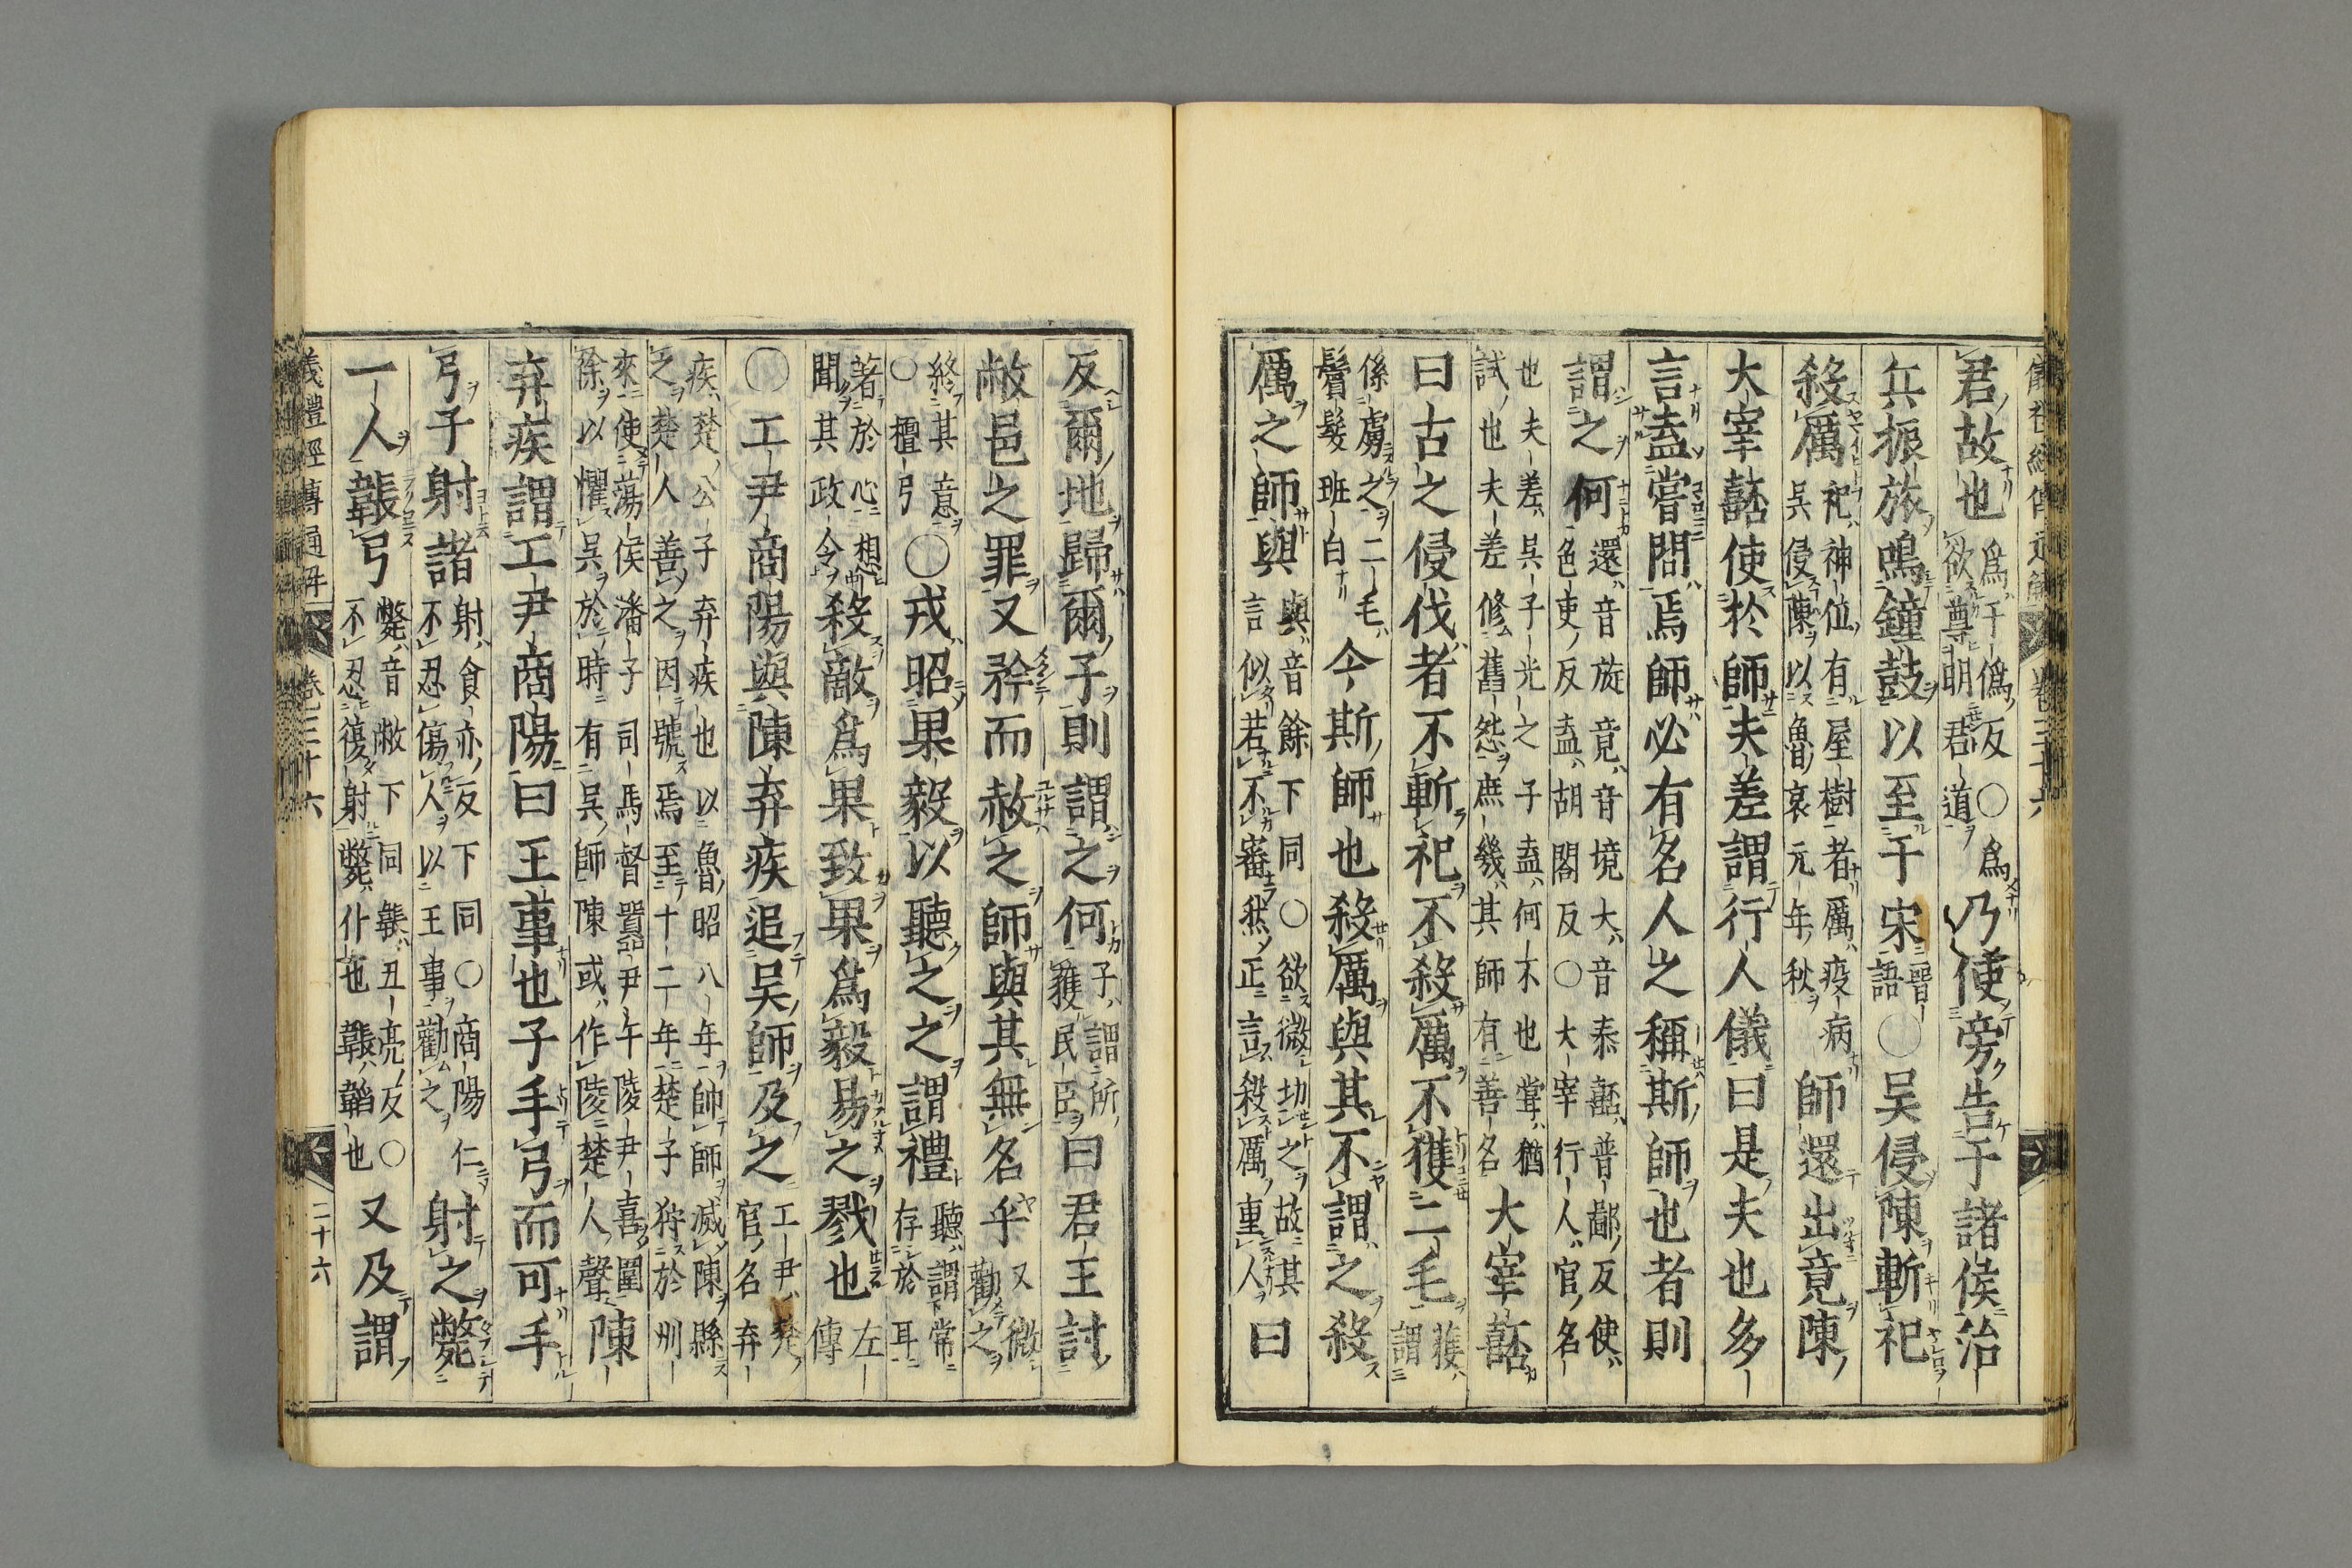 君故也爲于僞反○爲欲尊明君道乃使旁告于諸侯治
兵振旅鳴鐘鼓以至于宋晉語○吳侵陳斬祀
殺厲祀神位有屋樹者厲疫病吳侵陳以魯哀元年秋師還出竟陳
大宰嚭使於師夫差謂行人儀曰是夫也多
言盍嘗問焉師必有名人之稱斯師也者則
謂之何還音旋竟音境大音泰嚭普鄙反使色吏反盍胡閤反○大宰行人官名
也夫差吳子光之子盍何不也嘗猶試也夫差修舊怨庶幾其師有善名大宰嚭
曰古之侵伐者不斬祀不殺厲不獲二毛獲謂
係虜之二毛鬢髮班白今斯師也殺厲與其不謂之殺
厲之師與與音餘下同○欲微切之故其言似若不審然正言殺厲重人曰
反爾地歸爾子則謂之何子謂所獲民臣曰君王討
敝邑之罪又矜而赦之師與其無名乎又微勸之
終其意○檀弓○戎昭果毅以聽之之謂禮聽謂常存於耳
著於心想聞其政令殺敵爲果致果爲毅易之戮也左傳
○工尹商陽與陳弃疾追吳師及之工尹楚官名弃
疾楚公子弃疾也以魯昭八年帥師滅陳縣之楚人善之因號焉至十二年楚子狩於州
來使蕩侯潘子司馬督囂尹午陵尹喜圍徐以懼吳於時有吳師陳或作陵楚人聲陳
弃疾謂工尹商陽曰王事也子手弓而可手
弓子射諸射食亦反下同○商陽仁不忍傷人以王事勸之射之斃
一人韔弓斃音敝下同韔丑亮反○不忍復射斃仆也韔韜也又及謂
儀禮經傳通解 卷三十六 二十六